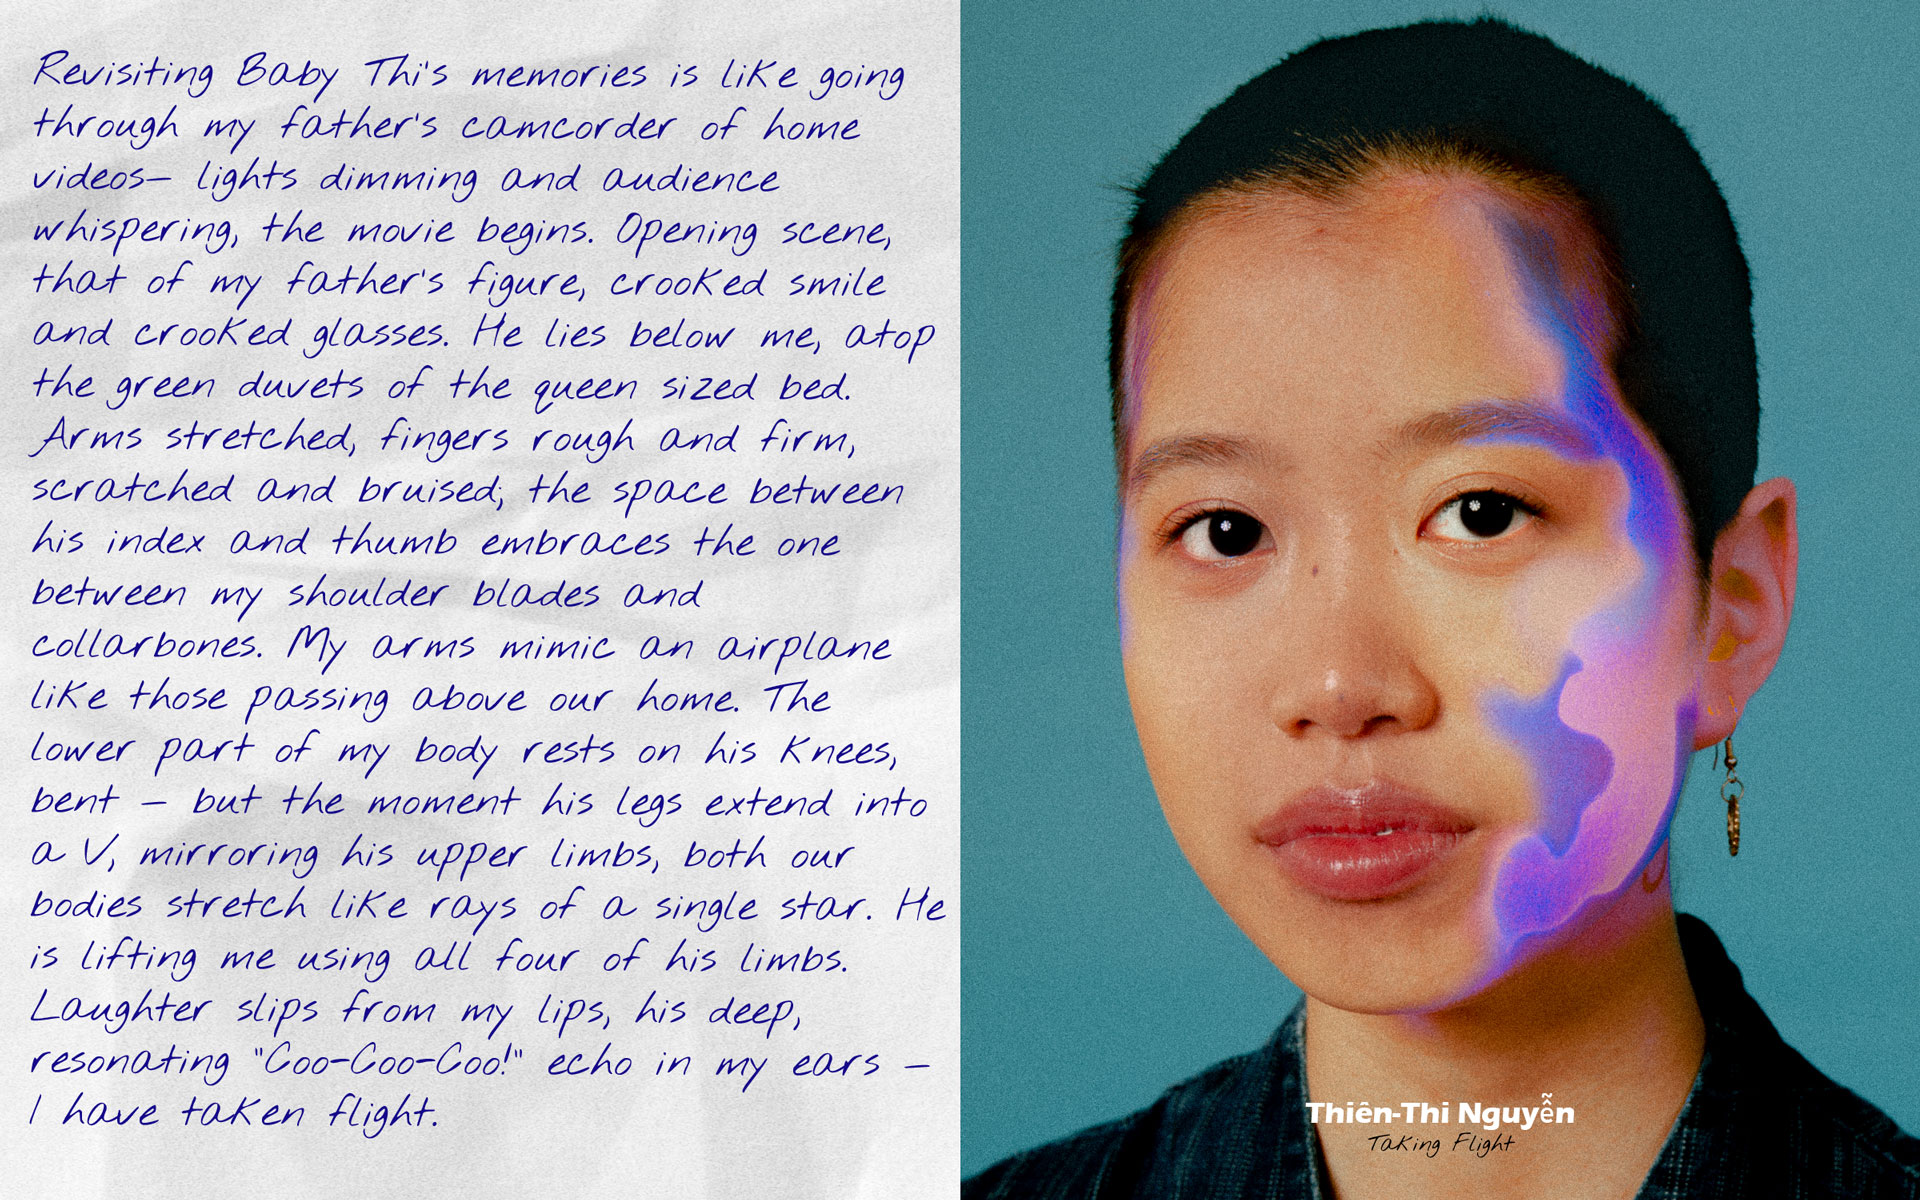 Revisiting Baby Thi's memories is like going
through my father's camcorder of home
videos— lights dimming and audience
whispering, the movie begins. Opening scene,
that of my father's figure, crooked smile
and crooked glasses. He lies below me, atop
the green duvets of the queen sized bed.
Arms stretched, fingers rough and firm,
scratched and bruised; the space between
his index and thumb embraces the one
between my shoulder blades and
collarbones. My arms mimic an airplane
like those passing above our home. The
lower part of my body rests on his knees,
bent — but the moment his legs extend into
a V, mirroring his upper limbs, both our
bodies stretch like rays of a single star. He
is lifting me using all four of his limbs.
Laughter slips from my lips, his deep,
resonating "Coo-Coo-Coo!" echo in my ears —
I have taken flight.
Thiên-Thi Nguyễn
Taking Flight